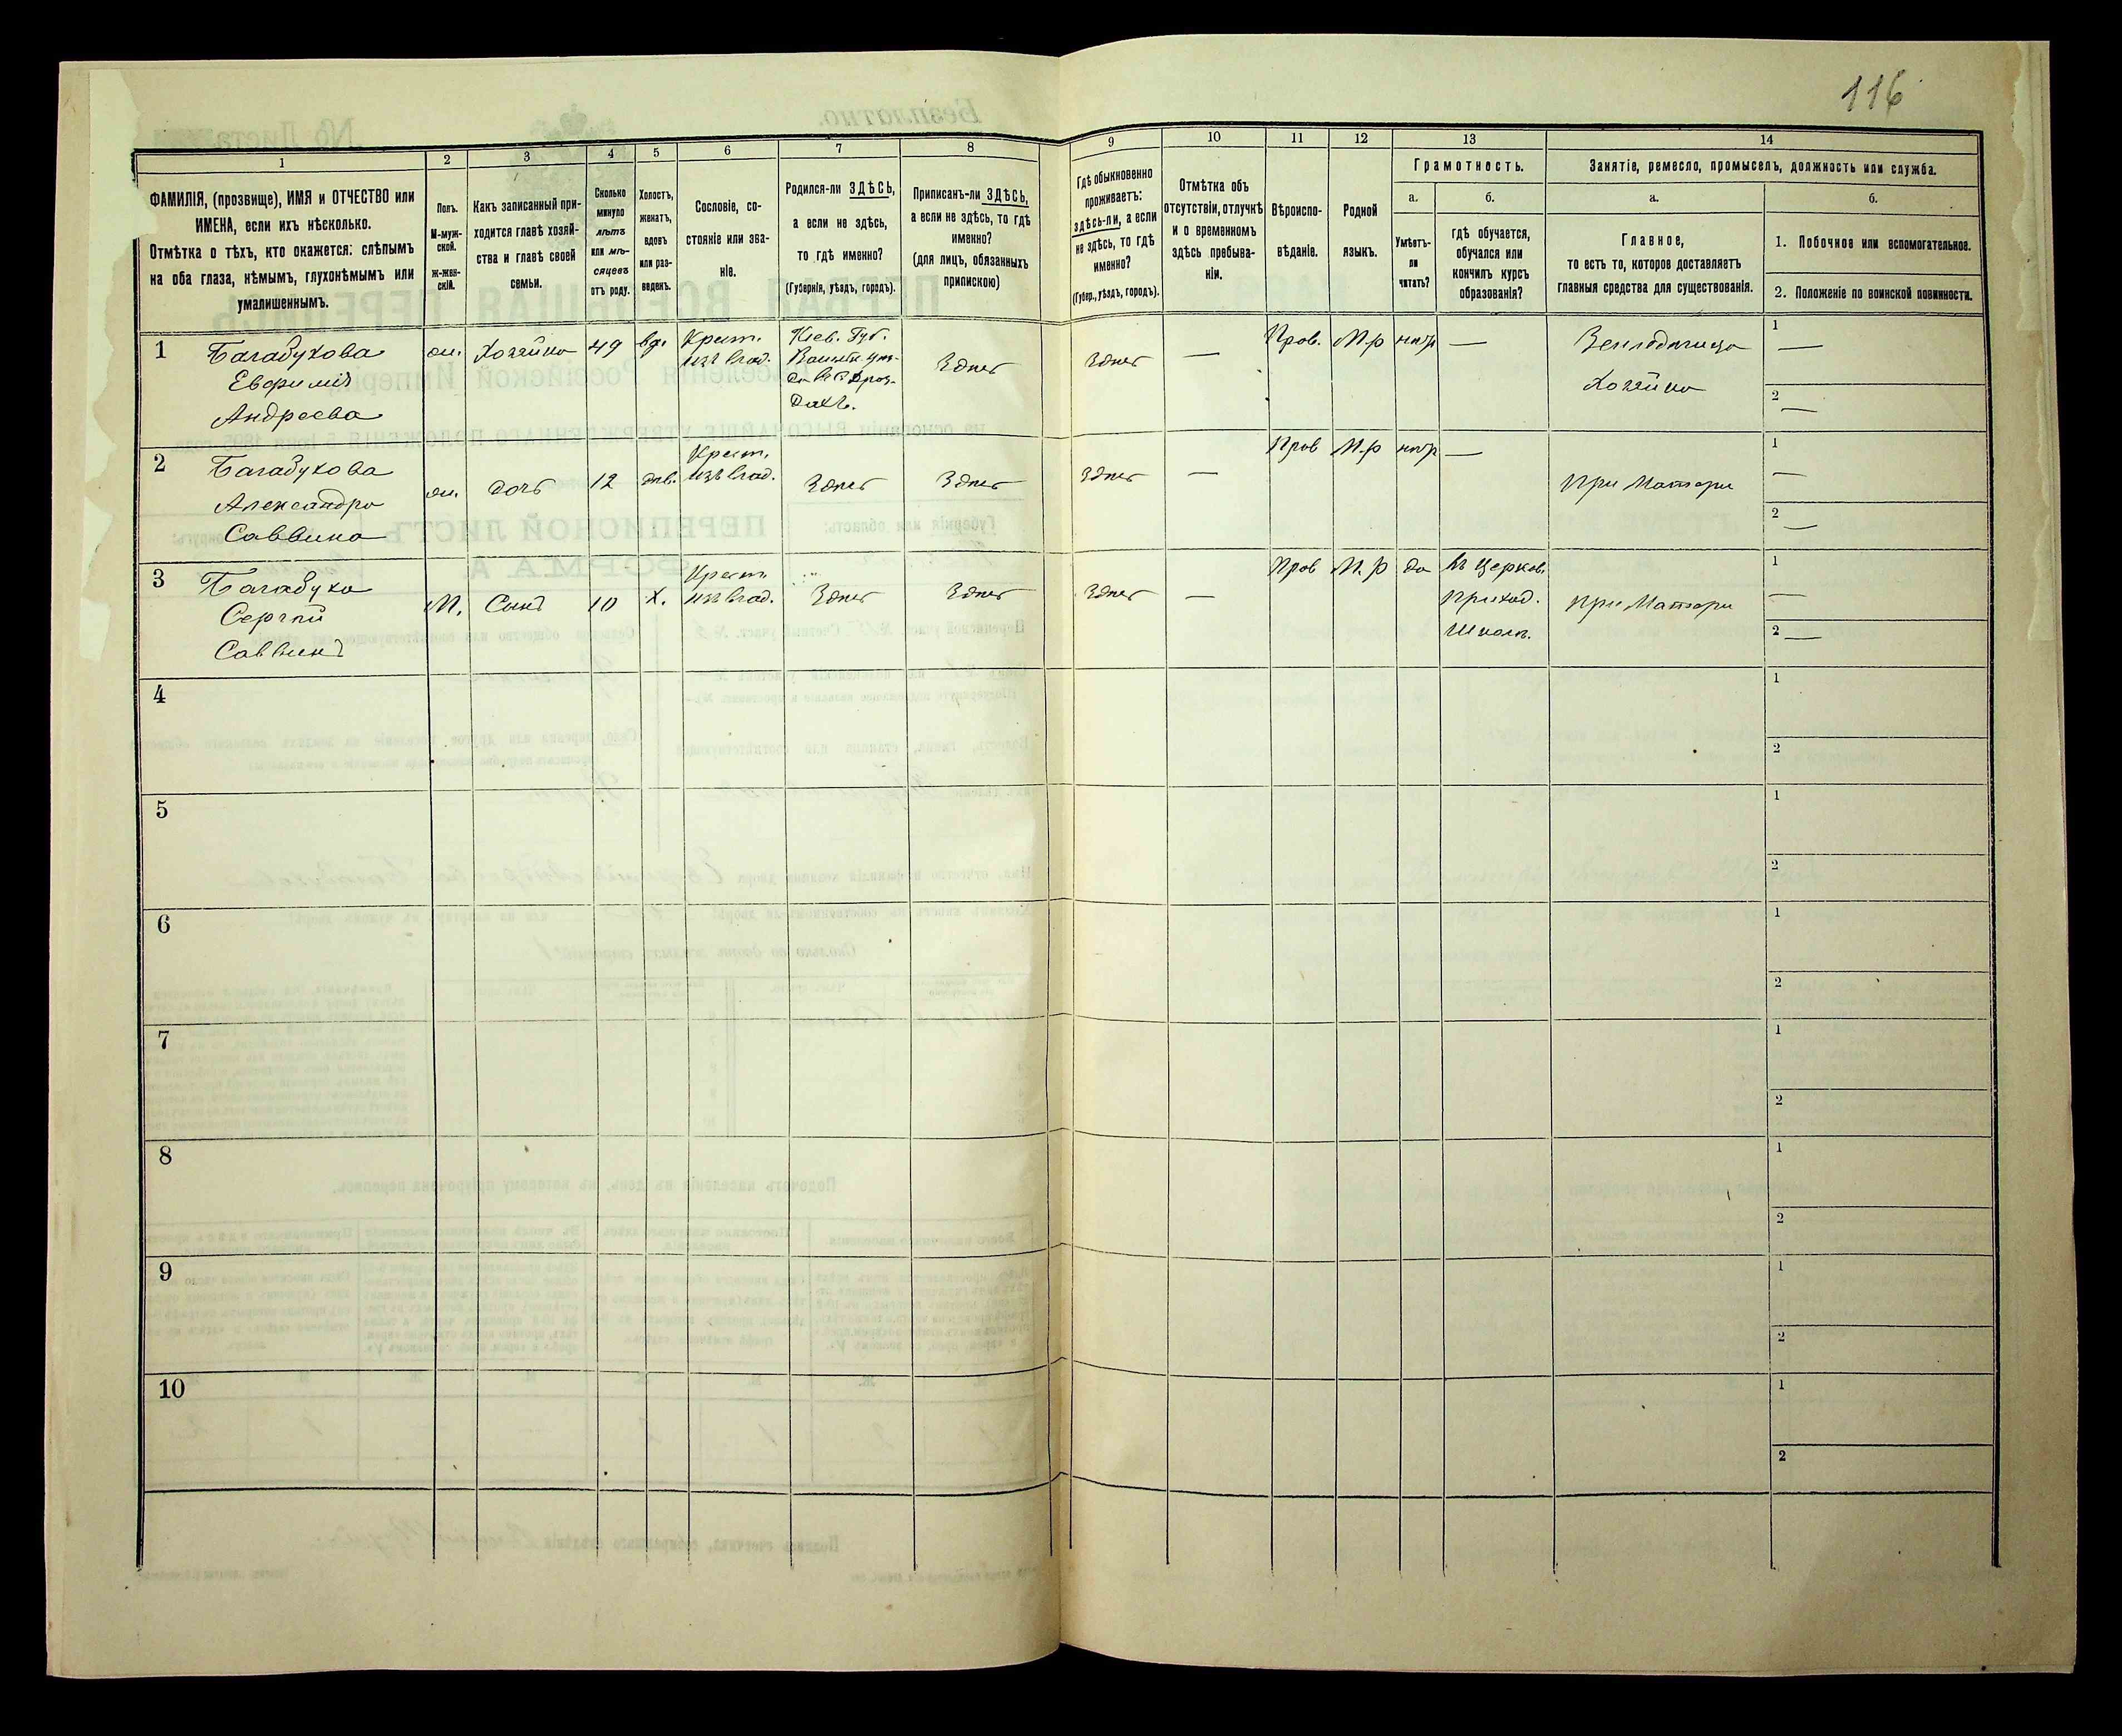 116
1
2
3
4
5
6
7
8
9
10
11
12
13
14
ФАМИЛІЯ, (прозвище), ИМЯ и ОТЧЕСТВО или
ИМЕНА, если ихъ нѣсколько.
Отмѣтка о тѣхъ, кто окажется: слѣпымъ
на оба глаза, нѣмымъ, глухонѣмымъ или
умалишеннымъ.
Полъ.
М-муж-
ской.
ж-жен-
скій.
Какъ записанный при-
ходится главѣ хозяй-
ства и главѣ своей
семьи.
Сколько
минуло
лѣтъ
или мѣ-
сяцевъ
отъ роду.
Холостъ,
женатъ,
вдовъ
или раз-
веденъ.
Сословіе, со-
стояніе или зва-
ніе.
Родился-ли ЗДѢСЬ,
а если не здѣсь,
то гдѣ именно?
(Губернія, уѣздъ, городъ).
Приписанъ-ли ЗДѢСЬ,
а если не здѣсь, то гдѣ
именно?
(для лицъ, обязанныхъ
припискою)
Гдѣ обыкновенно
проживаетъ:
здѣсь-ли, а если
не здѣсь, то гдѣ
именно?
(Губер., уѣздъ, городъ).
Отмѣтка объ
отсутствіи, отлучкѣ
и о временномъ
здѣсь пребыва-
ніи.
Вѣроиспо-
вѣданіе.
Родной
языкъ.
Грамотность.
а.
Умѣетъ-
ли
читать?
б.
гдѣ обучается,
обучался или
кончилъ курсъ
образованія?
Занятіе, ремесло, промыселъ, должность или служба.
а.
Главное,
то есть то, которое доставляетъ
главныя средства для существованія.
б.
1. Побочное или вспомогательное.
2. Положеніе по воинской повинности.
1
Багадухова
Евфимія
Андреева
ж.
Хозяйка
49
вд.
Крест.
изъ влад.
Кіев. Губ.
Здѣсь
Здѣсь
—
Пров.
М-р
нѣтъ
—
Земледѣлица
Хозяйка
1 —
2 —
2
Багадухова
Александра
Саввина
ж.
дочь
12
дѣв.
Крест.
изъ влад.
Здѣсь
Здѣсь
Здѣсь
—
Пров
М-р
нѣтъ
—
при Матери
1 —
2 —
3
Багадуха
Сергѣй
Саввинъ
М.
Сынъ
10
Х.
Крест.
изъ влад.
Здѣсь
Здѣсь
Здѣсь
—
Пров
М.р
да
въ Церков.
приход.
Школѣ.
при Матери
1 —
2 —
4
1
2
5
1
2
6
1
2
7
1
2
8
1
2
9
1
2
10
1
2